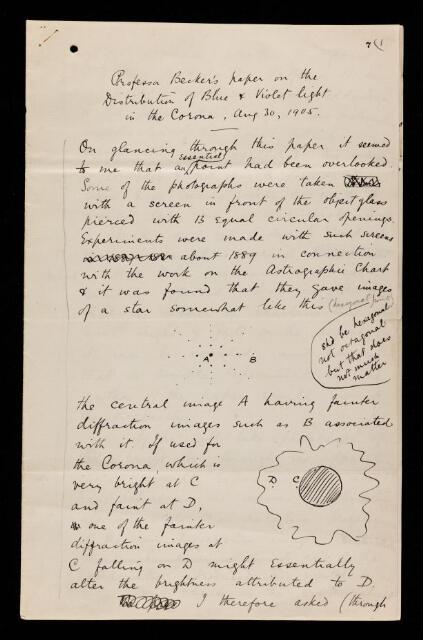 7 (1
Professor Becker's paper on the
Distribution of Blue & Violet light
in the Corona, Aug 30, 1905.
On glancing through this paper it seemed
to me that an essential point had been overlooked
Some of the photographs were taken
with a screen in front of the object glass
pierced with 13 equal circular openings.
Experiments were made with such screens
about 1889 in connection
with the work on the Astrographic Chart
& it was found that they gave images
of a star somewhat like this
shd be hexagonal
not octagonal
but that does
not much
matter
A B
the central image A having fainter
diffraction images such as B associated
with it. If used for
the Corona, which is
very bright at C
and faint at D,
one of the fainter
diffraction images at
D C
C falling on D might essentially
alter the brightness attributed to D.
I therefore asked (through